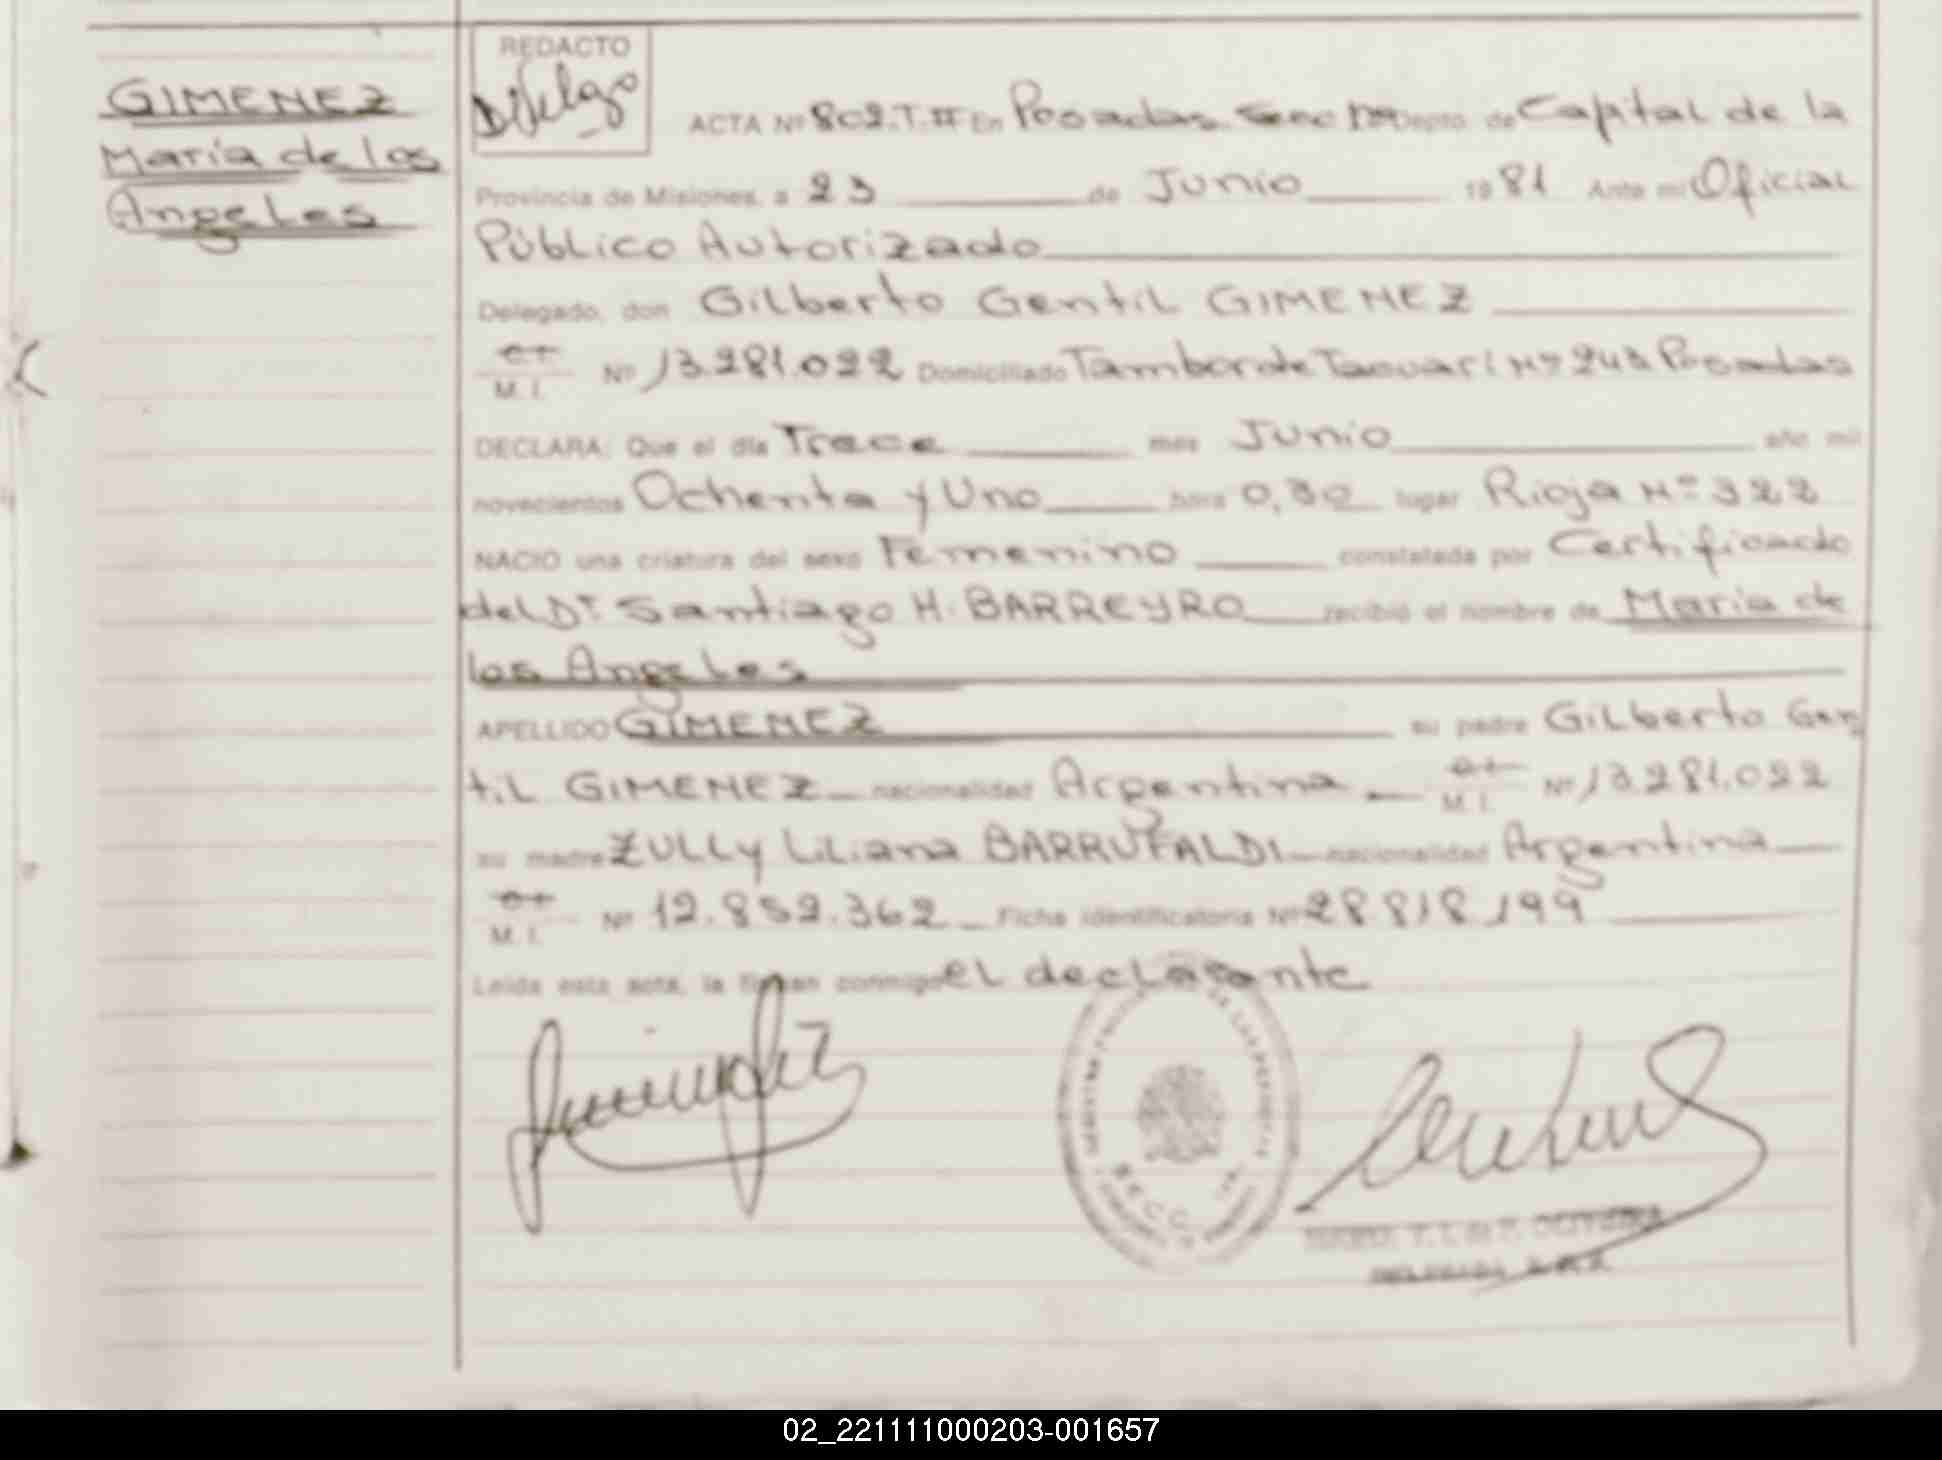 GIMENEZ
María de los
Angeles
REDACTO
ACTA Nº 802.T.II En Posadas. Secc Depto de Capital de la
Provincia de Misiones, a 23 de Junio 1981 Ante mi Oficial
Público Autorizado
Delegado, don Gilberto Gentil GIMENEZ
M. I. Nº 13.281.022 Domiciliado Tambor de Tacuarí Nº 243 Posadas
DECLARA: Que el día Trece mes Junio año mil
novecientos Ochenta y Uno hora 0,30 lugar Rioja Nº 322
NACIO una criatura del sexo Femenino constatada por Certificado
del Dr. Santiago H. BARREYRO recibió el nombre de María de
los Angeles
APELLIDO GIMENEZ su padre Gilberto Gen
til GIMENEZ nacionalidad Argentina M. I. Nº 13.281.022
su madre ZULLY Liliana BARRUFALDI nacionalidad Argentina
M. I. Nº 12.852.362 Ficha identificatoria Nº 28818199
Leída esta acta, la firman conmigo el declarante
SECC.
02_221111000203-001657